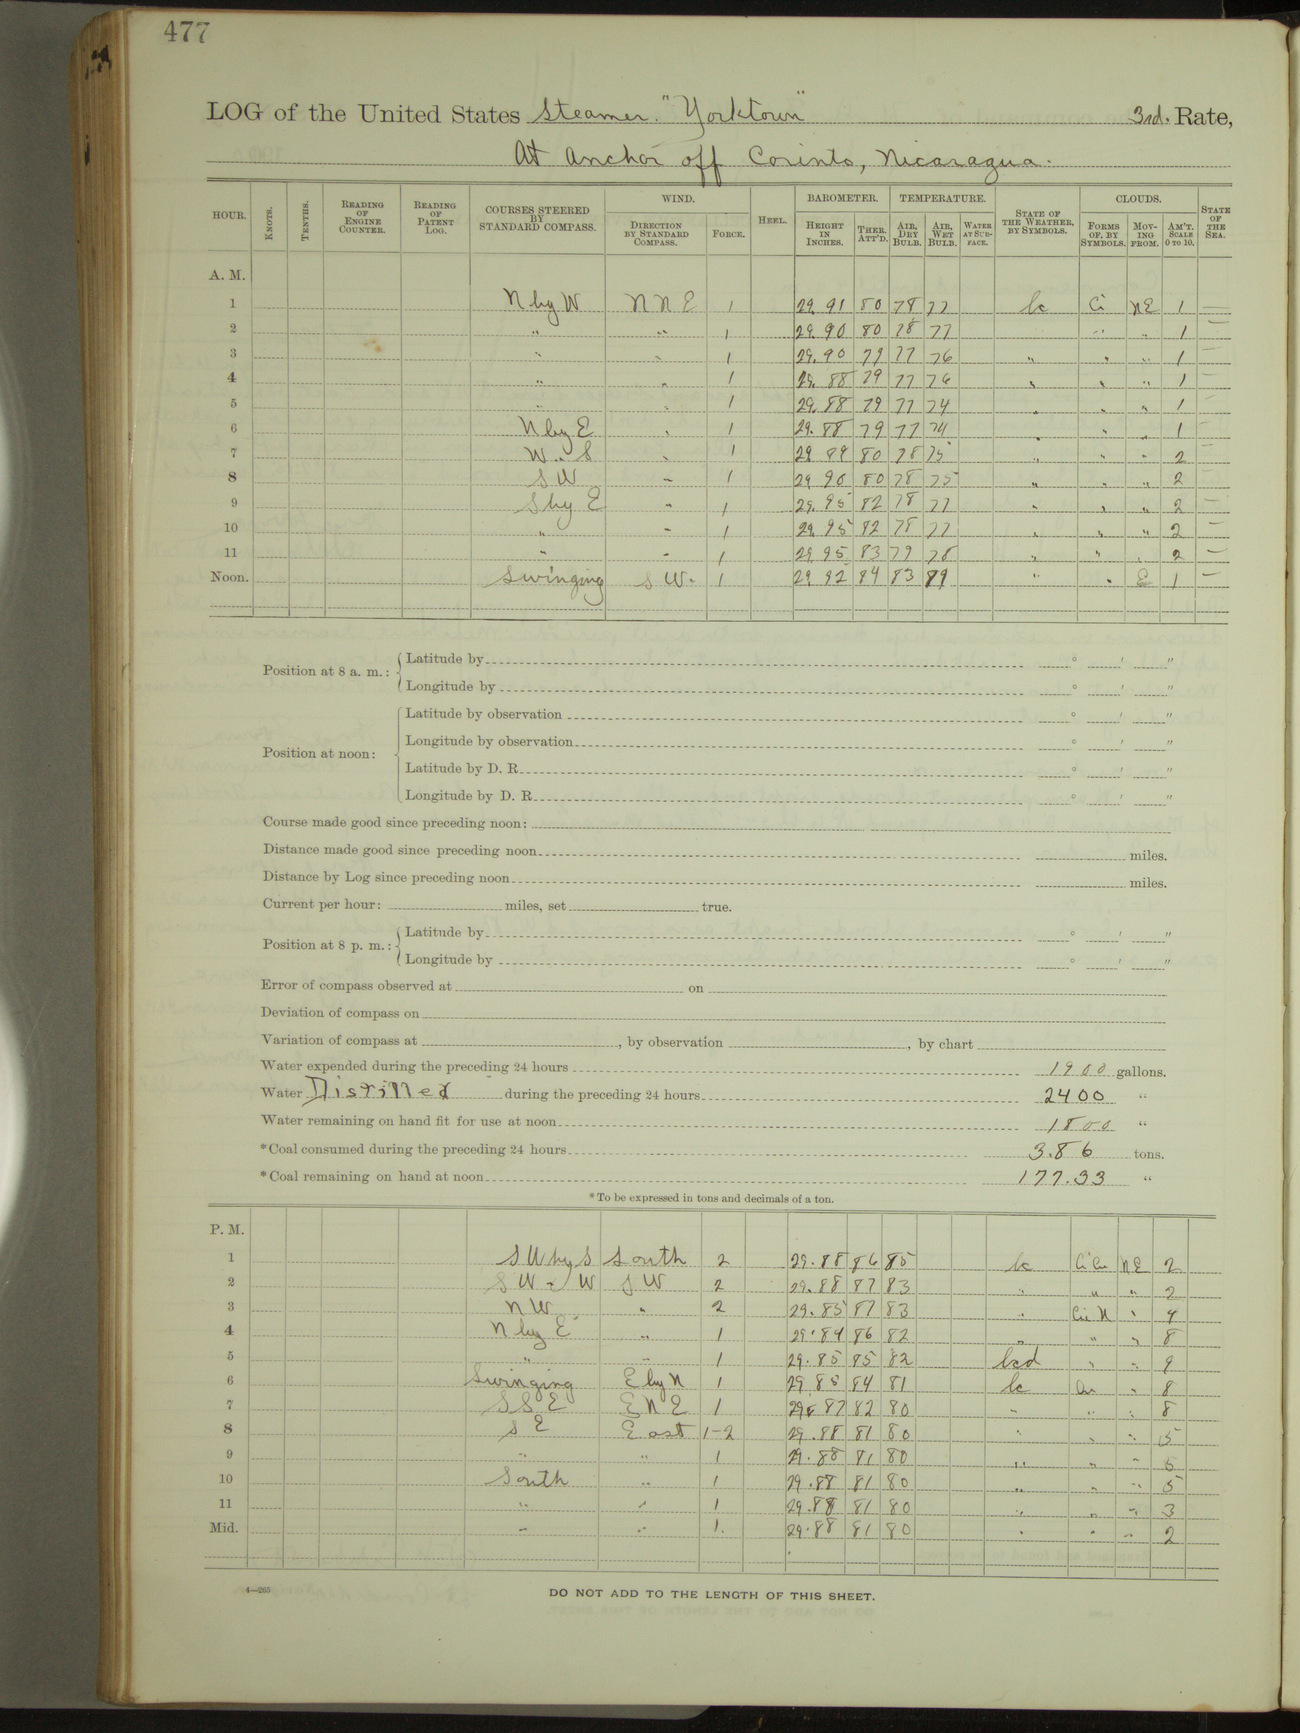 477
LOG of the United States Steamer "Yorktown" 3rd. Rate,
At Anchor off Corinto, Nicaragua.
HOUR. KNOTS. TENTHS. READING OF ENGINE COUNTER. READING OF PATENT LOG. COURSES STEERED BY STANDARD COMPASS. WIND. DIRECTION BY STANDARD COMPASS. FORCE. HEEL. BAROMETER. HEIGHT IN INCHES. THER. ATT'D. TEMPERATURE. AIR, DRY BULB. AIR, WET BULB. WATER AT SURFACE. STATE OF THE WEATHER, BY SYMBOLS. CLOUDS. FORMS OF, BY SYMBOLS. MOVING FROM. AM'T. SCALE 0 TO 10. STATE OF THE SEA.
A. M.
1 N by W N N E 1 29.91 80 78 77 bc Ci NE 1 —
2 " " 1 29.90 80 78 77 " " 1 —
3 " " 1 29.90 79 77 76 " " " 1 —
4 " " 1 29.88 79 77 76 " " " 1 —
5 " " 1 29.88 79 77 74 " " " 1 —
6 N by E " 1 29.88 79 77 74 " " " 1 —
7 W " S " 1 29.89 80 78 75 " " " 2 —
8 S W " 1 29.90 80 78 75 " " " 2 —
9 S by E " 1 29.95 82 78 77 " " " 2 —
10 " " 1 29.95 82 78 77 " " " 2 —
11 " " 1 29.95 83 79 78 " " " 2 —
Noon. Swinging S W. 1 29.92 84 83 " " E 1 —
Position at 8 a. m.: Latitude by ° ' "
Longitude by ° ' "
Position at noon: Latitude by observation ° ' "
Longitude by observation ° ' "
Latitude by D. R. ° ' "
Longitude by D. R. ° ' "
Course made good since preceding noon:
Distance made good since preceding noon miles.
Distance by Log since preceding noon miles.
Current per hour: miles, set true.
Position at 8 p. m.: Latitude by ° ' "
Longitude by ° ' "
Error of compass observed at on
Deviation of compass on
Variation of compass at , by observation , by chart
Water expended during the preceding 24 hours 1900 gallons.
Water Distilled during the preceding 24 hours 2400 "
Water remaining on hand fit for use at noon 1800 "
*Coal consumed during the preceding 24 hours 3.86 tons.
*Coal remaining on hand at noon 177.33 "
*To be expressed in tons and decimals of a ton.
P. M.
1 S W by S South 2 29.88 86 85 bc Ci Cu NE 2
2 S W " W S W 2 29.88 87 83 " " " 2
3 N W " 2 29.85 87 83 " " 4
4 N by E " 1 29.84 86 82 " " " 8
5 " " 1 29.85 85 82 bcd " " 9
6 Swinging E by N 1 29.85 84 81 bc Cu " 8
7 S S E E N E 1 29.87 82 80 " " " 8
8 S E East 1-2 29.88 81 80 " " " 5
9 " " 1 29.88 81 80 " " " 5
10 South " 1 29.88 81 80 " " " 5
11 " " 1 29.88 81 80 " " " 3
Mid. " " 1. 29.88 81 80 " " " 2
4—265
DO NOT ADD TO THE LENGTH OF THIS SHEET.